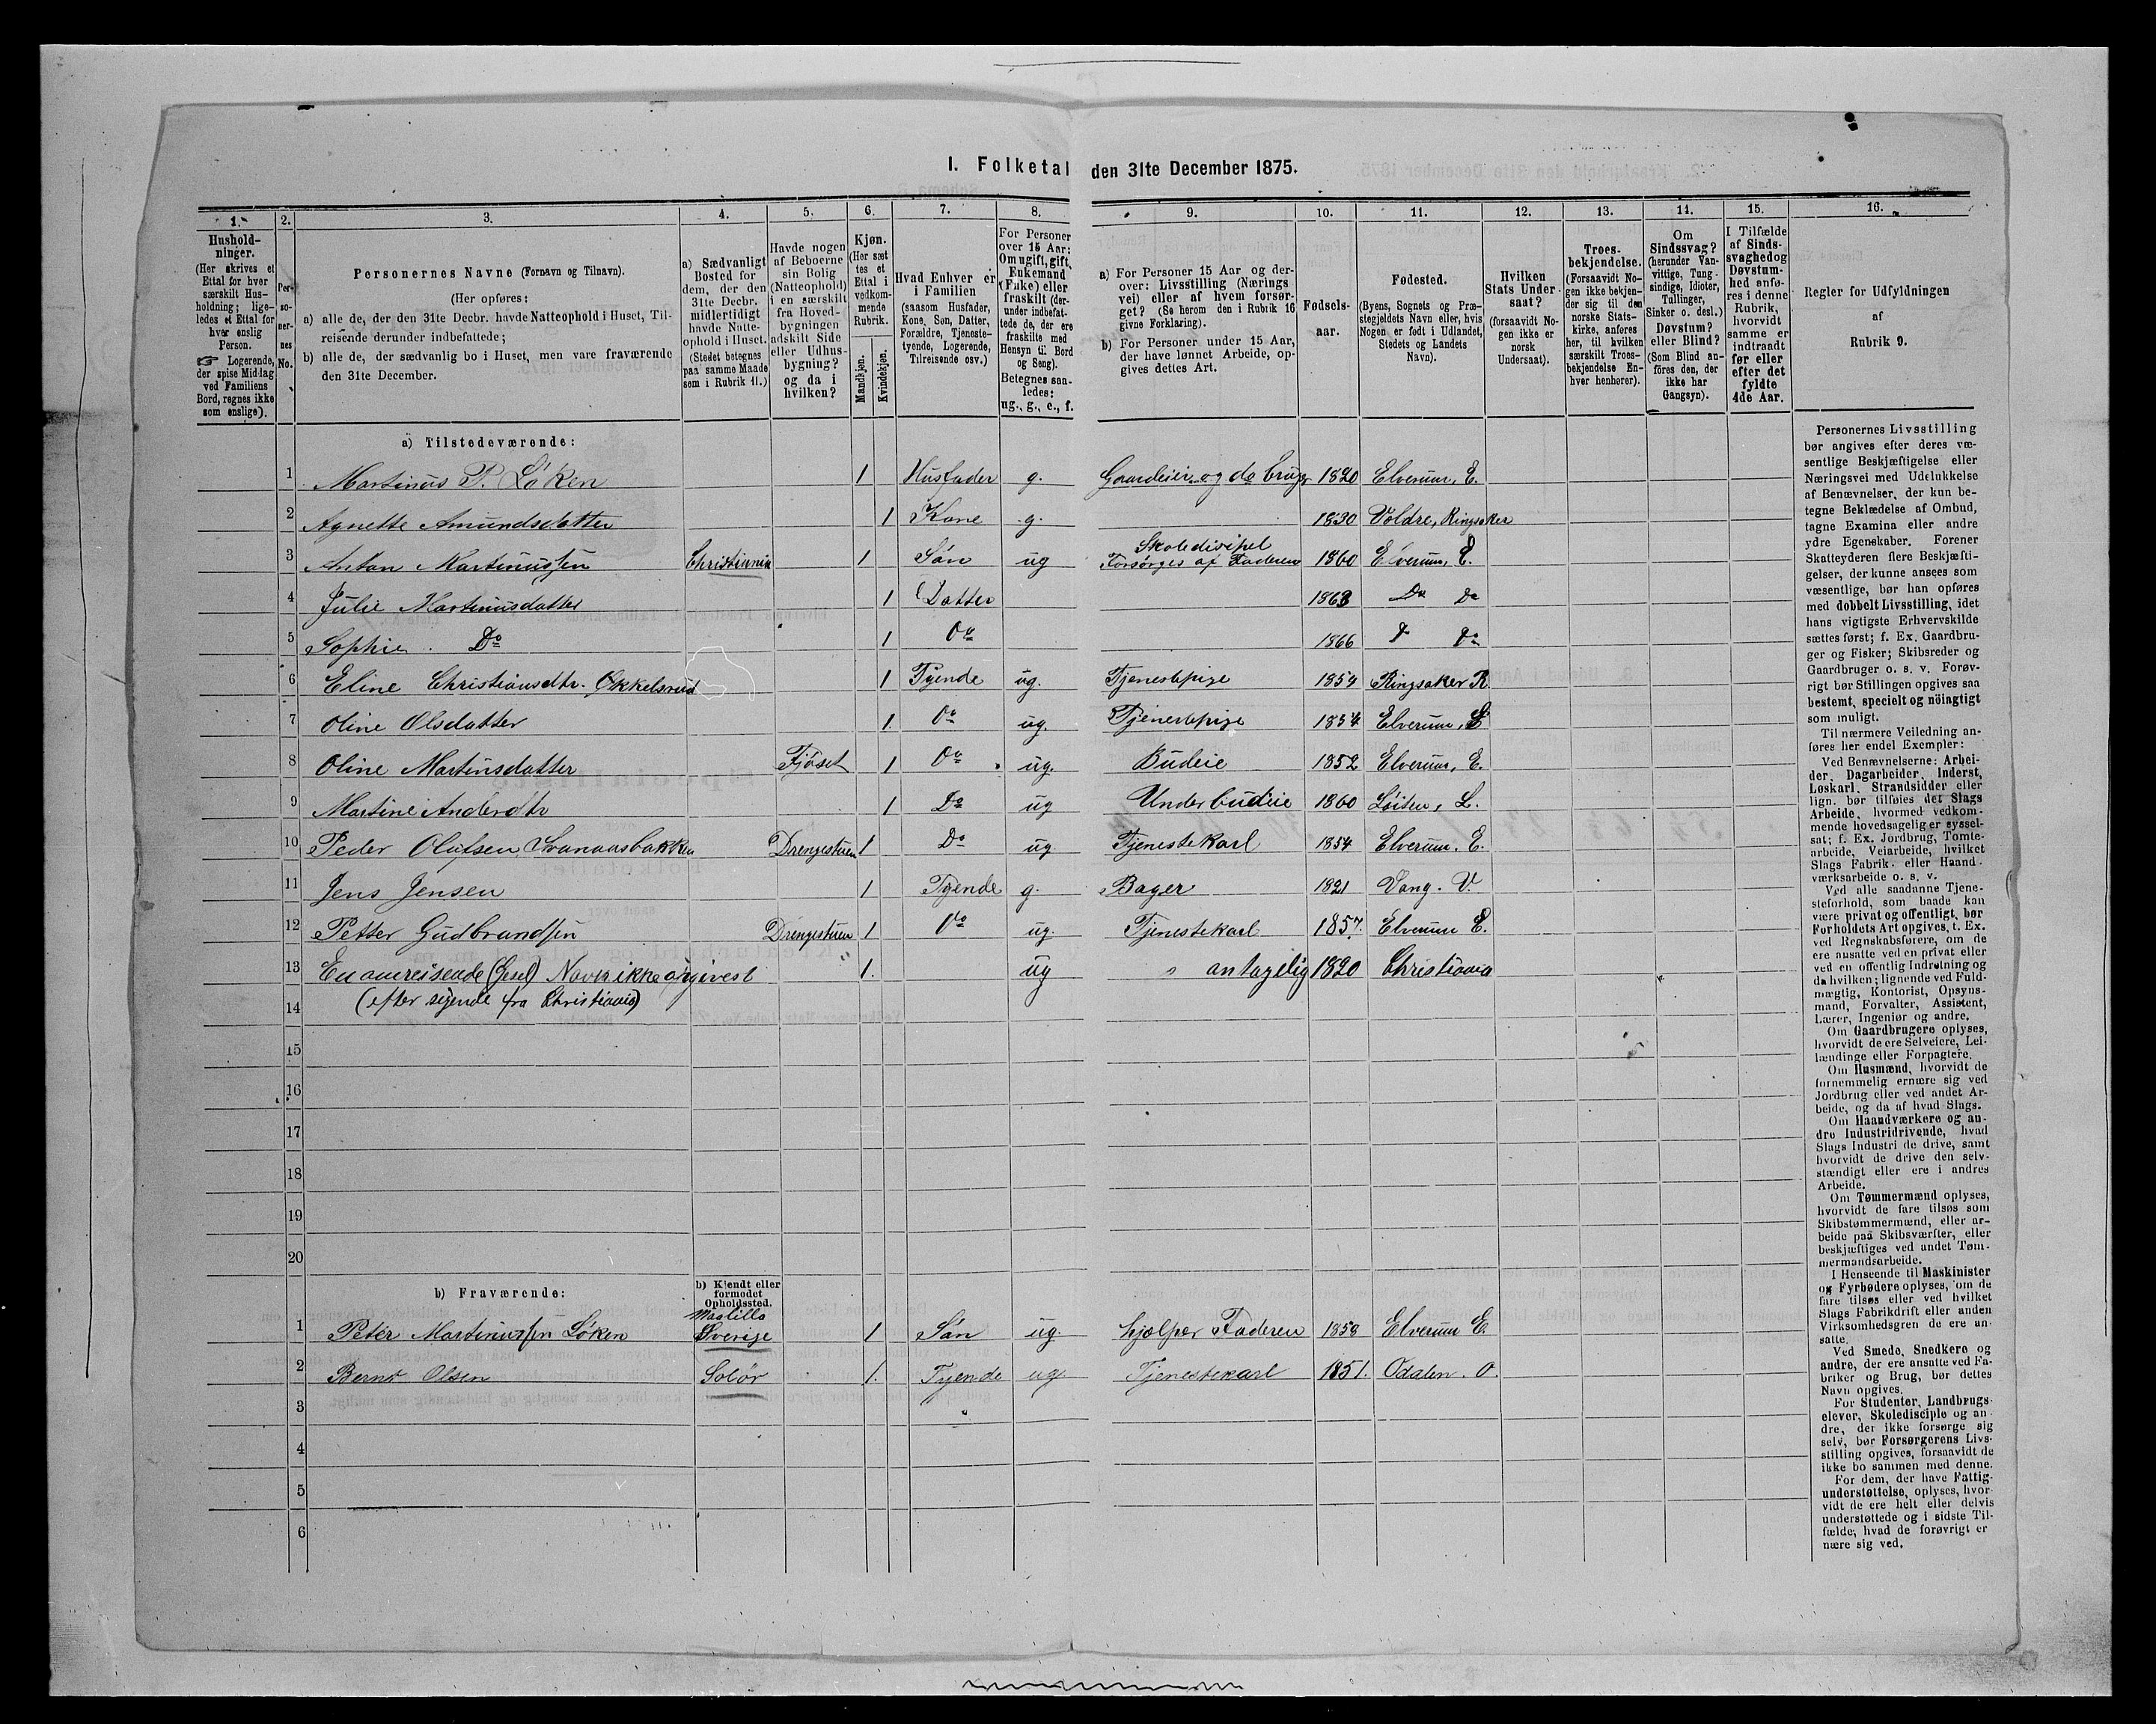 I. Folketal den 31te December 1875.
1. 2. 3. 4. 5. 6. 7. 8. 9. 10. 11. 12. 13. 14. 15. 16.
Hushold-
ninger.
(Her skrives et
Ettal for hver
særskilt Hus-
holdning; lige-
ledes et Ettal for
hver enslig
Person.
☞ Logerende,
der spise Middag
ved Familiens
Bord, regnes ikke
som enslige).
Per-
so-
ner-
nes
No.
Personernes Navne (Fornavn og Tilnavn).
(Her opføres:
a) alle de, der den 31te Decbr. havde Natteophold i Huset, Til-
reisende derunder indbefattede;
b) alle de, der sædvanlig bo i Huset, men vare fraværende
den 31te December.
a) Sædvanligt
Bosted for
dem, der den
31te Decbr.
midlertidigt
havde Natte-
ophold i Huset.
(Stedet betegnes
paa samme Maade
som i Rubrik 11.)
Havde nogen
af Beboerne
sin Bolig
(Natteophold)
i en særskilt
fra Hoved-
bygningen
adskilt Side
eller Udhus-
bygning?
og da i
hvilken?
Kjøn.
(Her sæt
tes et
Ettal i
vedkom-
mende
Rubrik.
Mandkjøn.
Kvindekjøn.
Hvad Enhver er
i Familien
(saasom Husfader,
Kone, Søn, Datter,
Forældre, Tjeneste-
tyende, Logerende,
Tilreisende osv.)
For Personer
over 15 Aar:
Om ugift, gift,
Enkemand
(Enke) eller
fraskilt (der-
under indbefat-
tede de, der ere
fraskilte med
Hensyn til Bord
og Seng).
Betegnes saa-
ledes:
ug., g., e., f.
a) For Personer 15 Aar og der-
over: Livsstilling (Nærings
vei) eller af hvem forsør-
get? (Se herom den i Rubrik 16
givne Forklaring).
b) For Personer under 15 Aar,
der have lønnet Arbeide, op-
gives dettes Art.
Fødsels-
aar.
Fødested.
(Byens, Sognets og Præ-
stegjeldets Navn eller, hvis
Nogen er født i Udlandet,
Stedets og Landets
Navn).
Hvilken
Stats Under-
saat?
(forsaavidt No-
gen ikke er
norsk
Undersaat).
Troes-
bekjendelse.
(Forsaavidt No-
gen ikke bekjen-
der sig til den
norske Stats-
kirke, anføres
her, til hvilken
særskilt Troes-
bekjendelse En-
hver henhører).
Om
Sindssvag?
(herunder Van-
vittige, Tung-
sindige, Idioter,
Tullinger,
Sinker o. desl.)
Døvstum?
eller Blind?
(Som Blind an-
føres den, der
ikke har
Gangsyn).
I Tilfælde
af Sinds-
svaghed og
Døvstum-
hed anfø-
res i denne
Rubrik,
hvorvidt
samme er
indtraadt
før eller
efter det
fyldte
4de Aar.
Regler for Udfyldningen
af
Rubrik 9.
a) Tilstedeværende:
1 Martinus P. Löken 1 Husfader g. Gaardeier og do bruger 1820 Elverum, E.
2 Agnette Amundsdatter 1 Kone g. 1830 Voldre, Ringsaker
3 Anton Martinussen Christiania 1 Sön ug Skoledisipel Forsörges af Faderen 1860 Elverum, E.
4 Julie Martinusdatter 1 Datter 1863 Do Do
5 Sophie Do 1 Do 1866 Do Do
6 Eline Christiansdtr. Økkelsrud 1 Tyende ug. Tjenestepige 1859 Ringsaker R.
7 Oline Olsdatter 1 Do ug. Tjenestepige 1854 Elverum, E
8 Oline Martinsdatter Fjöset 1 Do ug. Budeie 1852 Elverum, E.
9 Martine Andersdtr 1 Do ug Underbudeie 1860 Löiten, L.
10 Peder Olafsen Svanaasbakken Drengestuen 1 Do ug Tjenestekarl 1854 Elverum, E.
11 Jens Jensen 1 Tyende g. Bager 1821 Vang. V.
12 Petter Gudbrandsen Drengestuen 1 Do ug. Tjenestekarl 1857. Elverum E.
13 En omreisende (Gesel) Navn ikke opgivest 1. ug antagelig 1820 Christiania
14 (efter sigende fra Christiania)
15
16
17
18
19
20
b) Fraværende:
b) Kjendt eller
formodet
Opholdssted.
1 Peter Martinussen Löken Sverige 1 Sön ug. hjælper Faderen 1858 Elverum E.
2 Bernt Olsen Solör 1. Tyende ug Tjenestekarl 1851. Odalen. O.
3
4
5
6
Personernes Livsstilling
bør angives efter deres væ-
sentlige Beskjæftigelse eller
Næringsvei med Udelukkelse
af Benævnelser, der kun be-
tegne Beklædelse af Ombud,
tagne Examina eller andre
ydre Egenskaber. Forener
Skatteyderen flere Beskjæfti-
gelser, der kunne ansees som
væsentlige, bør han opføres
med dobbelt Livsstilling, idet
hans vigtigste Erhvervskilde
sættes først; f. Ex. Gaardbru-
ger og Fisker; Skibsreder og
Gaardbruger o. s. v. Forøv-
rigt bør Stillingen opgives saa
bestemt, specielt og nöiagtigt
som muligt.
Til nærmere Veiledning an-
føres her endel Exempler:
Ved Benævnelserne: Arbei-
der, Dagarbeider, Inderst,
Løskarl, Strandsidder eller
lign. bør tilføies det Slags
Arbeide, hvormed vedkom-
mende hovedsagelig er syssel-
sat; f. Ex. Jordbrug, Tomte-
arbeide, Veiarbeide, hvilket
Slags Fabrik- eller Haand-
værksarbeide o. s. v.
Ved alle saadanne Tjene-
steforhold, som baade kan
være privat og offentligt, bør
Forholdets Art opgives, t. Ex.
ved Regnskabsførere, om de
ere ansatte ved en privat eller
ved en offentlig Indretning og
da hvilken; lignende ved Fuld-
mægtig, Kontorist, Opsyns-
mand, Forvalter, Assistent,
Lærer, Ingeniør og andre.
Om Gaardbrugere oplyses,
hvorvidt de ere Selveiere, Lei-
lændinge eller Forpagtere.
Om Husmænd, hvorvidt de
fornemmelig ernære sig ved
Jordbrug eller ved andet Ar-
beide, og da af hvad Slags.
Om Haandværkere og an-
dre Industridrivende, hvad
Slags Industri de drive, samt
hvorvidt de drive den selv-
stændigt eller ere i andres
Arbeide.
Om Tømmermænd oplyses,
hvorvidt de fare tilsøs som
Skibstømmermænd, eller ar-
beide paa Skibsværfter, eller
beskjæftiges ved andet Tøm-
mermandsarbeide.
I Henseende til Maskinister
og Fyrbødere oplyses, om de
fare tilsøs eller ved hvilket
Slags Fabrikdrift eller anden
Virksomhedsgren de ere an-
satte.
Ved Smede, Snedkere og
andre, der ere ansatte ved Fa-
briker og Brug, bør dettes
Navn opgives.
For Studenter, Landbrugs-
elever, Skoledisciple og an-
dre, der ikke forsørge sig
selv, bør Forsørgerens Livs-
stilling opgives, forsaavidt de
ikke bo sammen med denne.
For dem, der have Fattig-
understøttelse, oplyses, hvor-
vidt de ere helt eller delvis
understøttede og i sidste Til-
fælde, hvad de forøvrigt er
nære sig ved.